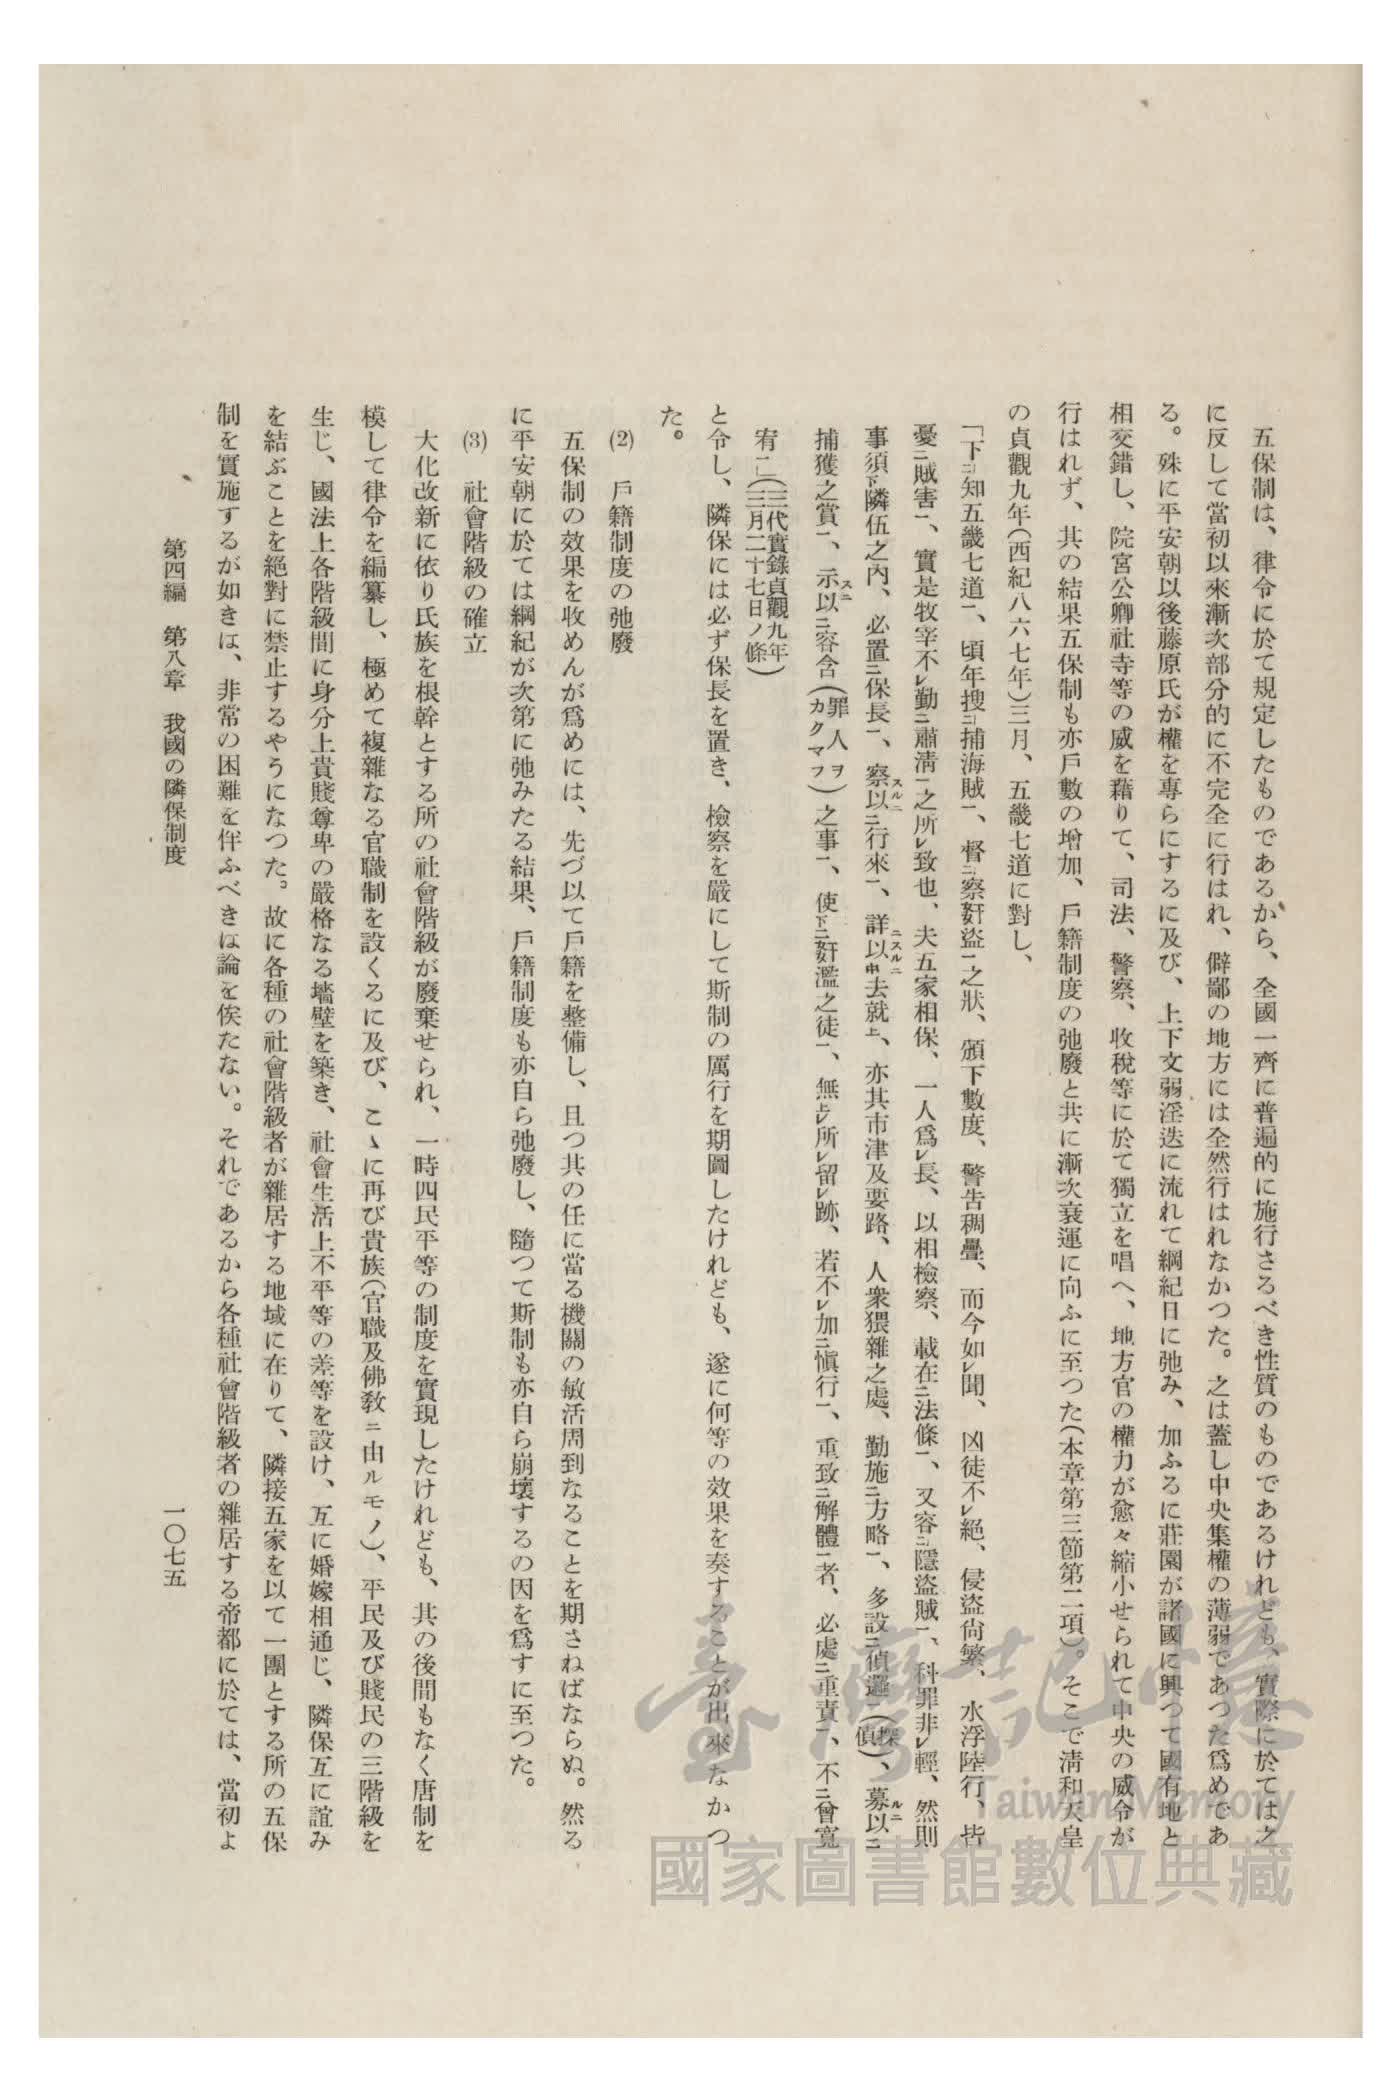 五保制は、律令に於て規定したものであるから、全國一齊に普遍的に施行さるべき性質のものであるけれども、實際に於ては之
に反して當初以來漸次部分的に不完全に行はれ、僻鄙の地方には全然行はれなかつた。之は蓋し中央集權の薄弱であつた爲めであ
る。殊に平安朝以後藤原氏が權を專らにするに及び、上下文弱淫迭に流れて綱紀日に弛み、加ふるに莊園が諸國に興つて國有地と
相交錯し、院宮公卿社寺等の威を藉りて、司法、警察、收稅等に於て獨立を唱へ、地方官の權力が愈々縮小せられて中央の威令が
行はれず、其の結果五保制も亦戶數の增加、戶籍制度の弛廢と共に漸次衰運に向ふに至つた(本章第三節第二項)。そこで淸和天皇
の貞觀九年(西紀八六七年)三月、五畿七道に對し、
「下ニ知五畿七道一、頃年搜ニ捕海賊一、督ニ察姧盜一之狀、頒下數度、警告稠疊、而今如レ聞、凶徒不レ絕、侵盜尙繁、水浮陸行、皆
憂ニ賊害一、實是牧宰不レ勤ニ肅淸一之所レ致也、夫五家相保、一人爲レ長、以相檢察、載在ニ法條一、又容ニ隱盜賊一、科罪非レ輕、然則
事須下隣伍之內、必置ニ保長一、察以スルニニ行來一、詳以ニスルニ申去就上、亦其市津及要路、人衆猥雜之處、勤施ニ方略一、多設ニ偵邏一(探偵)、募以ルニニ
捕獲之賞一、示以スニニ容含(罪人ヲカクマフ)之事一、使下ニ姧濫之徒一、無上レ所レ留レ跡、若不レ加ニ愼行一、重致ニ解體一者、必處ニ重責一、不ニ曾寬
宥一」(三代實錄貞觀九年三月二十七日ノ條)
と令し、隣保には必ず保長を置き、檢察を嚴にして斯制の厲行を期圖したけれども、遂に何等の效果を奏することが出來なかつ
た。
(2) 戶籍制度の弛廢
五保制の效果を收めんが爲めには、先づ以て戶籍を整備し、且つ其の任に當る機關の敏活周到なることを期さねばならぬ。然る
に平安朝に於ては綱紀が次第に弛みたる結果、戶籍制度も亦自ら弛廢し、隨つて斯制も亦自ら崩壞するの因を爲すに至つた。
(3) 社會階級の確立
大化改新に依り氏族を根幹とする所の社會階級が廢棄せられ、一時四民平等の制度を實現したけれども、其の後間もなく唐制を
模して律令を編纂し、極めて複雜なる官職制を設くるに及び、こゝに再び貴族(官職及佛敎ニ由ルモノ)、平民及び賤民の三階級を
生じ、國法上各階級間に身分上貴賤尊卑の嚴格なる墻壁を築き、社會生活上不平等の差等を設け、互に婚嫁相通じ、隣保互に誼み
を結ぶことを絕對に禁止するやうになつた。故に各種の社會階級者が雜居する地域に在りて、隣接五家を以て一團とする所の五保
制を實施するが如きは、非常の困難を伴ふべきは論を俟たない。それであるから各種社會階級者の雜居する帝都に於ては、當初よ
第四編 第八章 我國の隣保制度 一〇七五
臺灣記憶
Taiwan Memory
國家圖書館數位典藏